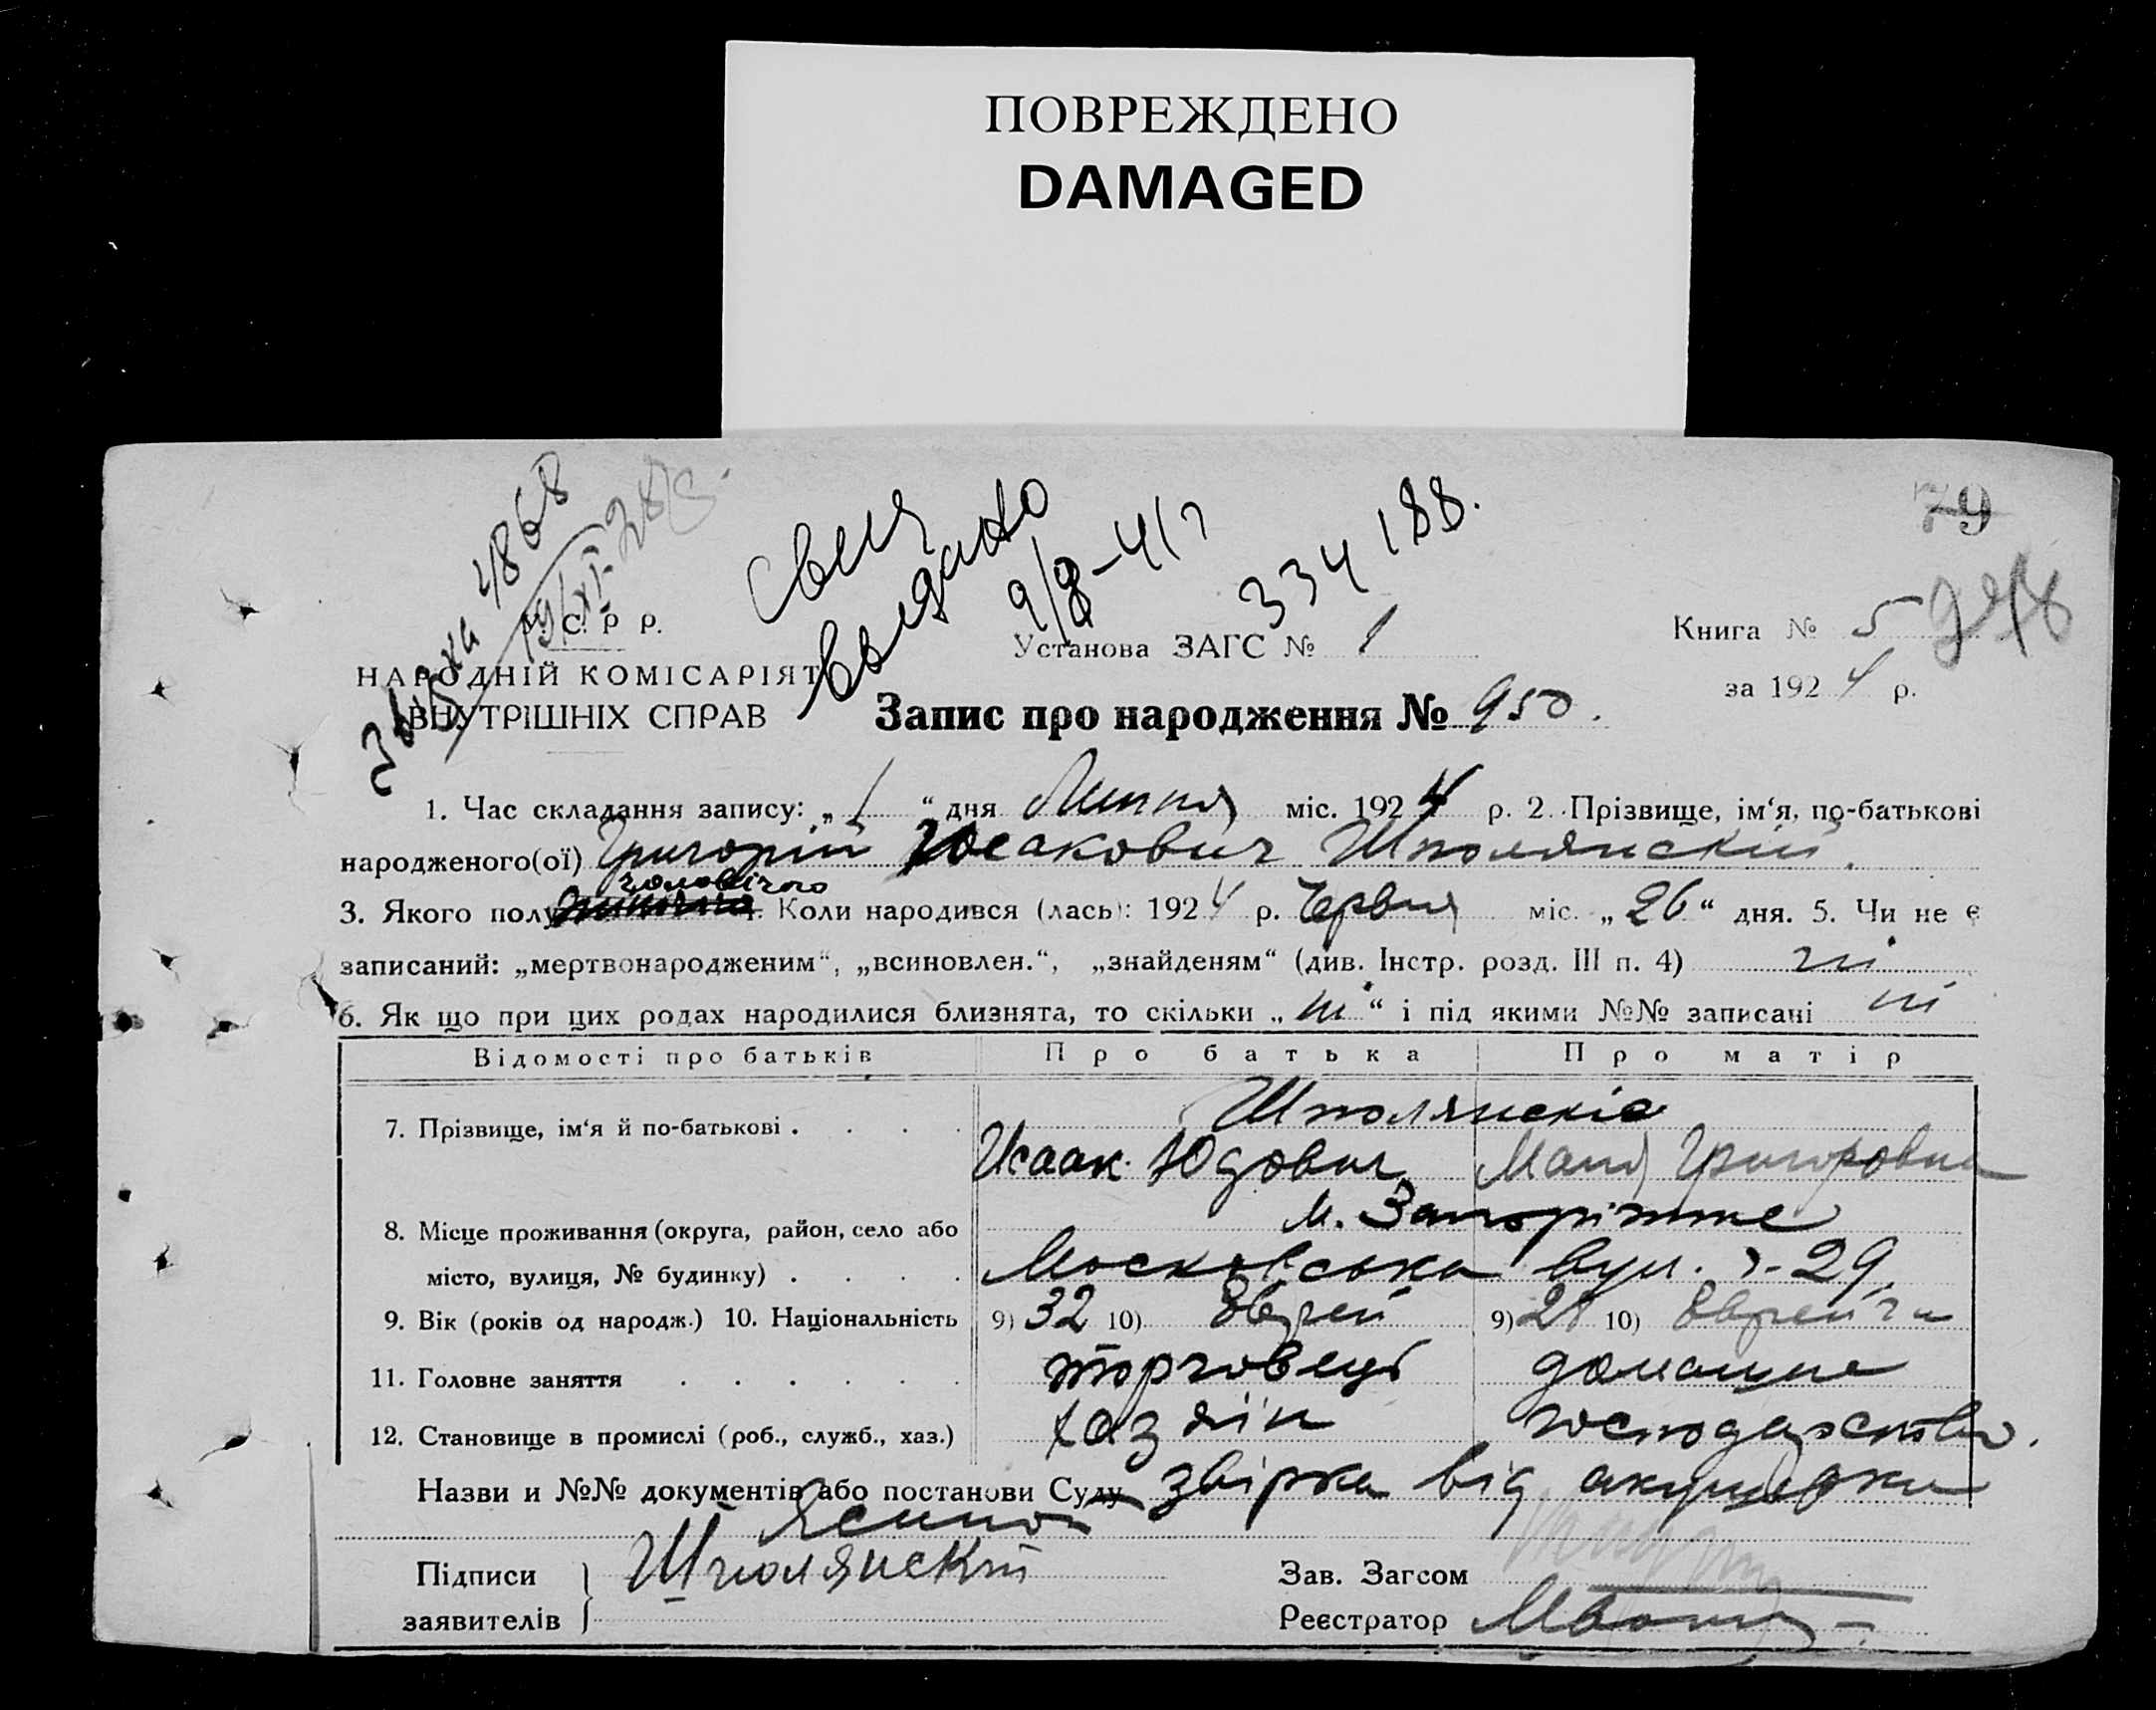 ПОВРЕЖДЕНО
DAMAGED
79
4868
19/XI
334188.
9/8-41
выдано
У. С. Р Р.
НАРОДНІЙ КОМІСАРІЯТ
ВНУТРІШНІХ СПРАВ
Установа ЗАГС № 1
Книга № 5
за 1924 р.
Запис про народження № 950.
1. Час складання запису: „1“ дня Липня міс. 1924 р. 2. Прізвище, ім‘я, по-батькові
народженого(ої) Григорій Юсакович Шполянскій.
чоловічого
3. Якого полу Коли народився (лась): 1924 р. Червня міс. „26“ дня. 5. Чи не є
записаний: „мертвонародженим“, „всиновлен.“, „знайденям“ (див. Інстр. розд. III п. 4) ні
6. Як що при цих родах народилися близнята, то скільки „ні“ і під якими №№ записані ні
Відомості про батьків Про батька Про матір
Шполянскіє
7. Прізвище, ім‘я й по-батькові . . . . Исаак Юдович Григоровна
м. Запоріжже
8. Місце проживання (округа, район, село або
місто, вулиця, № будинку) . . . . Московська вул. 29.
9. Вік (років од народж.) 10. Національність 9) 32 10) Єврей 9) 28 10) Єврейка
11. Головне заняття . . . . . . торговець домашне
12. Становище в промислі (роб., служб., хаз.) хазяїн господарство.
Назви и №№ документів або постанови Суду звірка від акушерки
Підписи
заявителів
Шполянский
Зав. Загсом
Реєстратор